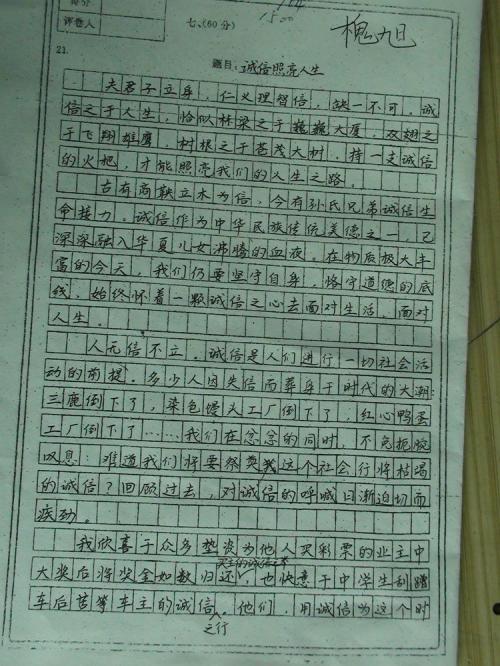 评卷人
七、(60分)
1500
槐旭
21.
题目:诚信照亮人生
夫君子立身,仁义理智信,缺一不可。诚
信之于人生,恰似栋梁之于巍巍大厦,双翅之
于飞翔雄鹰,树根之于苍茂大树,持一支诚信
的火把,才能照亮我们的人生之路。
古有商鞅立木为信,今有孙氏兄弟诚信生
命接力。诚信作为中华民族传统美德之一,已
深深融入华夏儿女沸腾的血液。在物质极大丰
富的今天,我们仍要坚守自身,恪守道德的底
线,始终怀着一颗诚信之心去面对生活,面对
人生。
人无信不立。诚信是人们进行一切社会活
动的前提。多少人因失信而葬身于时代的大潮
三鹿倒下了,染色馒头工厂倒下了,红心鸭蛋
工厂倒下了……我们在忿忿的同时,不免扼腕
叹息:难道我们将要祭奠这个社会行将枯竭
的诚信?回顾过去,对诚信的呼喊日渐迫切而
疾劲。
我欣喜于众多垫资为他人买彩票的业主中
大奖后将奖金如数归还,也快意于中学生刮蹭
车后苦等车主的诚信之行,他们,用诚信为这个时